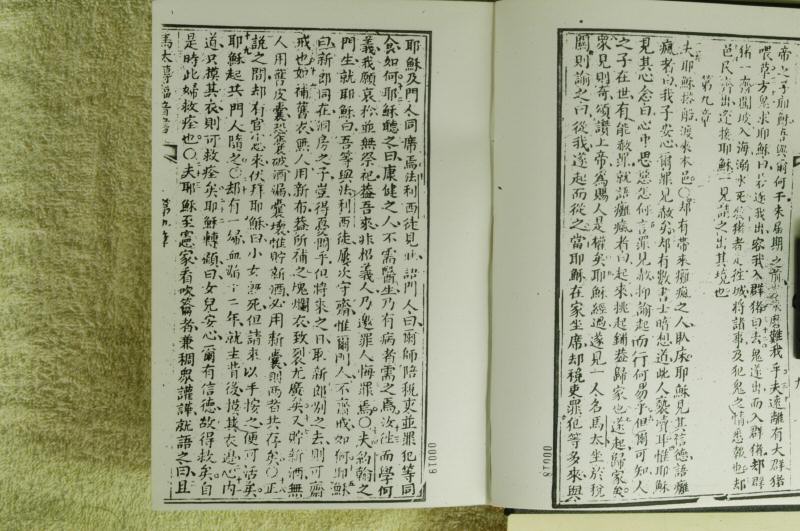 帝之子耶穌吾與爾何干未屆期之前來磨難我乎夫遠離有大群猪
喂草方鬼求耶穌曰若逐我出容我入群猪曰去鬼遂出而入群猪却群
猪齊闖坡入海溺水死牧猪者走往城將諸事及犯鬼之情悉報也却
邑民齊出迎接耶穌一見請之出其境也
第九章
夫耶穌搭船渡來本邑〇却有帶來癱瘋之人臥床耶穌見其信德語癱
瘋者曰我子安心爾罪見赦矣却有數書士暗想道此人褻瀆耳惟耶穌
見其心念曰心中思惡怎何言罪見赦抑諭起而行何易乎但爾可知人
之子在世有能赦罪就語癱瘋者曰起來挑起鋪蓋歸家也遂起歸家矣
眾見則奇頌讚上帝為賜人是權矣耶穌經過遂見一人名馬太坐於稅
關則諭之曰從我遂起而從之當耶穌在家坐席却稅吏罪犯等多來與
00018
耶穌及門人同席焉法利西徒見此語門人曰爾師陪稅吏並罪犯等同
食如何耶穌聽之曰康健之人不需醫生乃有病者需之焉汝往而學何
義我願哀矜並無祭祀蓋吾來非招義人乃邀罪人悔罪焉〇夫約翰之
門生就耶穌曰吾等與法利西徒屢次守齋惟爾門人不齋戒如何耶穌
曰新郎同在洞房之子豈得憂悶乎但將來之日取新郎別之去則可齋
戒也如補舊衣無人用新布蓋所補之塊爛衣致裂尤廣矣又貯新酒無
人用舊皮囊恐囊破酒漏囊壞惟貯新酒必用新囊則兩者共存矣〇正
說之間却有官憲來伏拜耶穌曰小女既死但請來以手按之便可活矣
耶穌起共門人隨之〇却有一婦血漏十二年就主背後摸其衣邊心內
道只摸其衣則可救痊矣耶穌轉顧曰女兒安心爾有信德故得救矣自
是時此婦救痊也〇夫耶穌至憲家看吹簫者兼稠眾讙譁就語之曰且
馬太傳福音書
第九章
00019